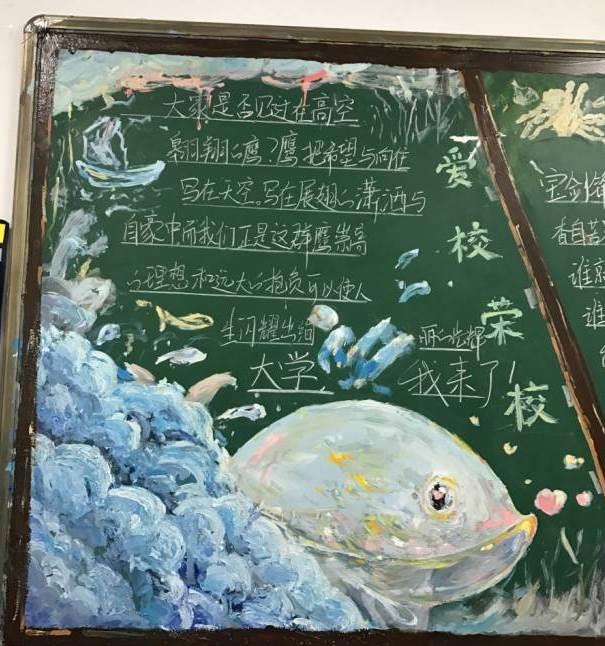 大家是否见过在高空
翱翔的鹰?鹰把希望与向往
写在天空,写在展翅的潇洒与
自豪中而我们正是这群鹰崇高
的理想和远大的抱负可以使人
生闪耀出绚丽的光辉
大学 我来了!
爱校荣校
宝剑锋
香自苦
谁
谁